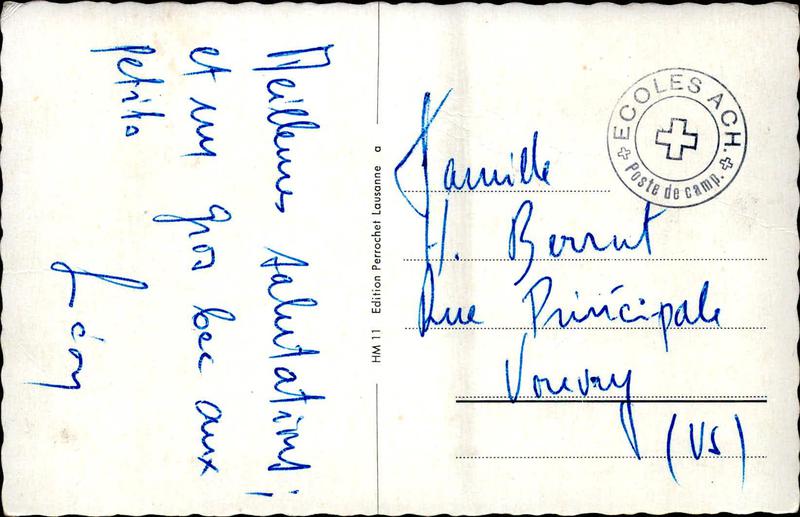 Meilleures salutations !
et un gros bec aux
petits
Léon
HM 11 Edition Perrochet Lausanne a
ECOLES ACH.
Poste de camp.
Famille
H. Berrut
Rue Principale
Vouvry
(VS)